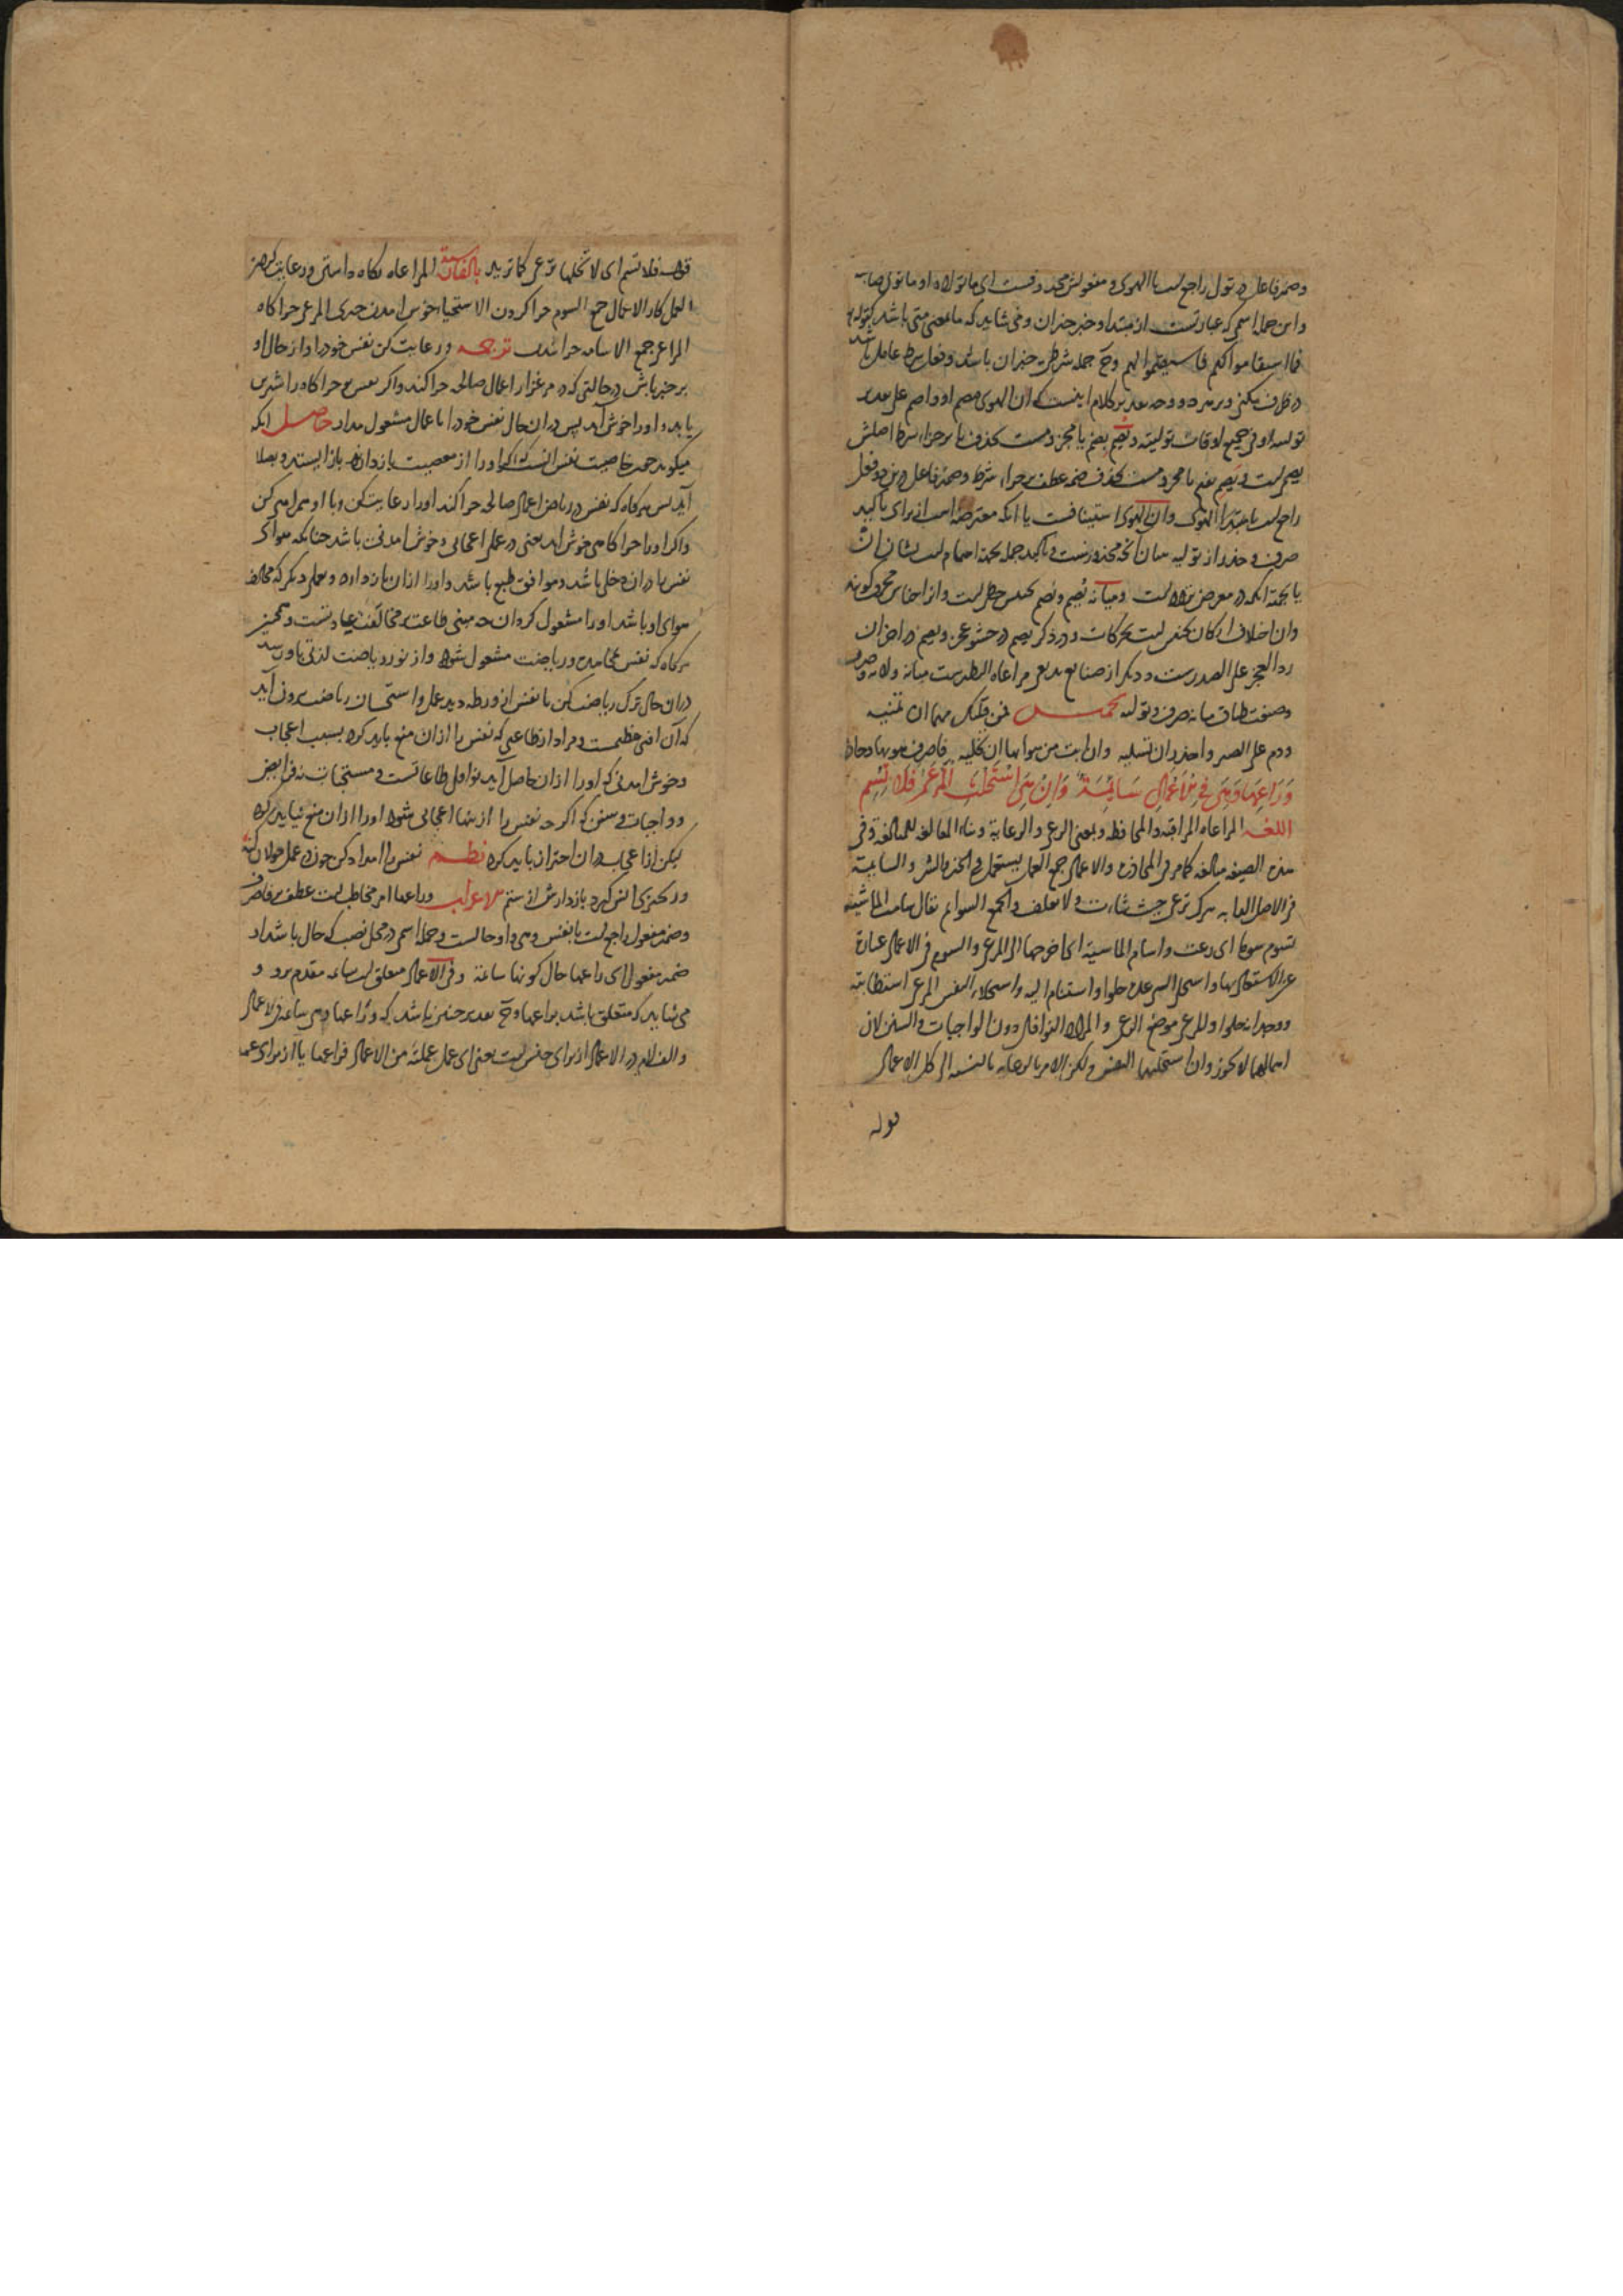 وضمیر فاعل در تول راجع است با الهوی و مفعولش محذوفست ای ما تولاه او ما تولی صاحبه
و این جمله اسمی که عبارتست از مبتدا و خبر خبر ان و می شاید که ما بمعنی متی باشد کقوله
فما استقاموا لکم فاستقیموا لهم و ح جمله شرطی خبر ان باشد و فعل شرط عامل باشد
در ظرف و وجه تقدیر کلام اینست که ان الهوی یصم او یصم علی تقدیر
تولیه او فی جمیع اوقات تولیته و یصم بضم یا مجزومست بحذف یا بر جزاء شرط اصلش
راجع است با الهوی و ان الهوی استینافست یا آنکه معترضه است از برای تاکید
صرف و حذر از تولیه
یا بجهة آنکه در معرض است و میانه یصم و یصم تجنیس خط است
و در ذکر یصم در حشو عجز و یصم در آخر آن
رد العجز علی الصدرست و دیگر از صنایع بدیعی مراعاة النظیرست میانه ولاة و صرف
و صنعت طباق میانه صرف و تولیه تخمیس
ودم علی الصبر واحذر ان تسلیه فاصرف هواها وحاذر
وَرَاعِهَا وَهِیَ فِی الْاَعْمَالِ سَائِمَةٌ وَاِنْ هِیَ اسْتَحْلَتِ الْمَرْعَی فَلَا تُسِمِ
اللغه المراعاة المراقبة والمحافظة وبمعنی الرعی والرعایة وبناء المفاعلة للمبالغة وفی
هذه الصیغة مبالغة کما مر فی المحاذرة والاعمال جمع العمل یستعمل فی الخیر والشر والسایمة
فی الاصل الدابة یترک ترعی حیث شاءت ولا تعلف والجمع السوایم یقال سامت الماشیة
تسوم سوما ای رعت واسام الماشیة ای اخرجها الی المرعی والسوم فی الاعمال عبارة
عن الاشتغال بها واستحلی الشی عده حلوا واستنام الیه واستحلاء النفس المرعی استطابته
ووجدانه حلوا والمرعی موضع الرعی والمراد النوافل دون الواجبات والسنن لان
اهمالهما لا یجوز وان استحلیتهما النفس ولکن الامر بالرعایة بالنسبة الی کل الاعمال
قوله
قوله فلا تسم ای لا تخلها ترعی کما ترید بالفارسیة المراعاة نگاه داشتن و رعایت کردن
العمل کار الاعمال جمع السوم چرا کردن الاستحلاء خوش آمدن چیزی المرعی چراگاه
المراعی جمع الاسامة چرانیدن ترجمه و رعایت کن نفس خود را و از حال او
بر خبر باش در حالتی که در مرغزار اعمال صالحه چرا کند و اگر نفس تو چراگاه را شیرین
یابد و او را خوش آید پس در آن حال نفس خود را باعمال مشغول مدار حاصل آنکه
میگوید چون خاصیت نفس آنست که اگر او را از معصیت بازداری باز ایستد و بصلاح
آید پس هرگاه که نفس در ریاض اعمال صالحه چرا کند او را رعایت کن و با او همراهی کن
و اگر او را چراگاهی خوش آید یعنی در عملی اعجابی و خوش آمدنی باشد چنانکه هوای
نفس را در آن دخلی باشد و موافق طبع باشد و او را از آن بازداره و بعملی دیگر که مخالف
هوای او باشد او را مشغول گردان چه مبنی طاعت بر مخالفت عادتست و همچنین
هرگاه که نفس بمجاهده و ریاضت مشغول شود و از نور ریاضت لذتی باو رسد
در آن حال ترک ریاضت کن تا نفس از ورطه دید عمل و استحسان ریاضت بیرون آید
که آن آفتی عظیمست و مراد از طاعتی که نفس را از آن منع باید کرد بسبب اعجاب
و خوش آمدنی که او را از آن حاصل آید نوافل طاعاتست و مستحبات نه فرایض
و واجبات و سنن که اگر چه نفس را از اینها اعجابی شود او را از آن منع نباید کرد
لیکن از اعجاب در آن احتراز باید کرد نظم نفس را امداد کن چون در عمل جولان کند
ور بچیزی انس گیرد بازدارش از ستم الاعراب وراعها امر مخاطب است عطف بر فاصرف
و ضمیر مفعول راجع است با نفس وهی واو حالست و جمله اسمی در محل نصب که حال باشد از
ضمیر مفعول ای راعها حال کونها سائمة و فی الاعمال متعلق است بسائمة مقدم برو و
می شاید که متعلق باشد براعها و ح تقدیر چنین باشد که وراعها وهی سائمة فی الاعمال
و الف لام در الاعمال از برای جنس است یعنی ای عمل عملته من الاعمال فراعها یا از برای عهد